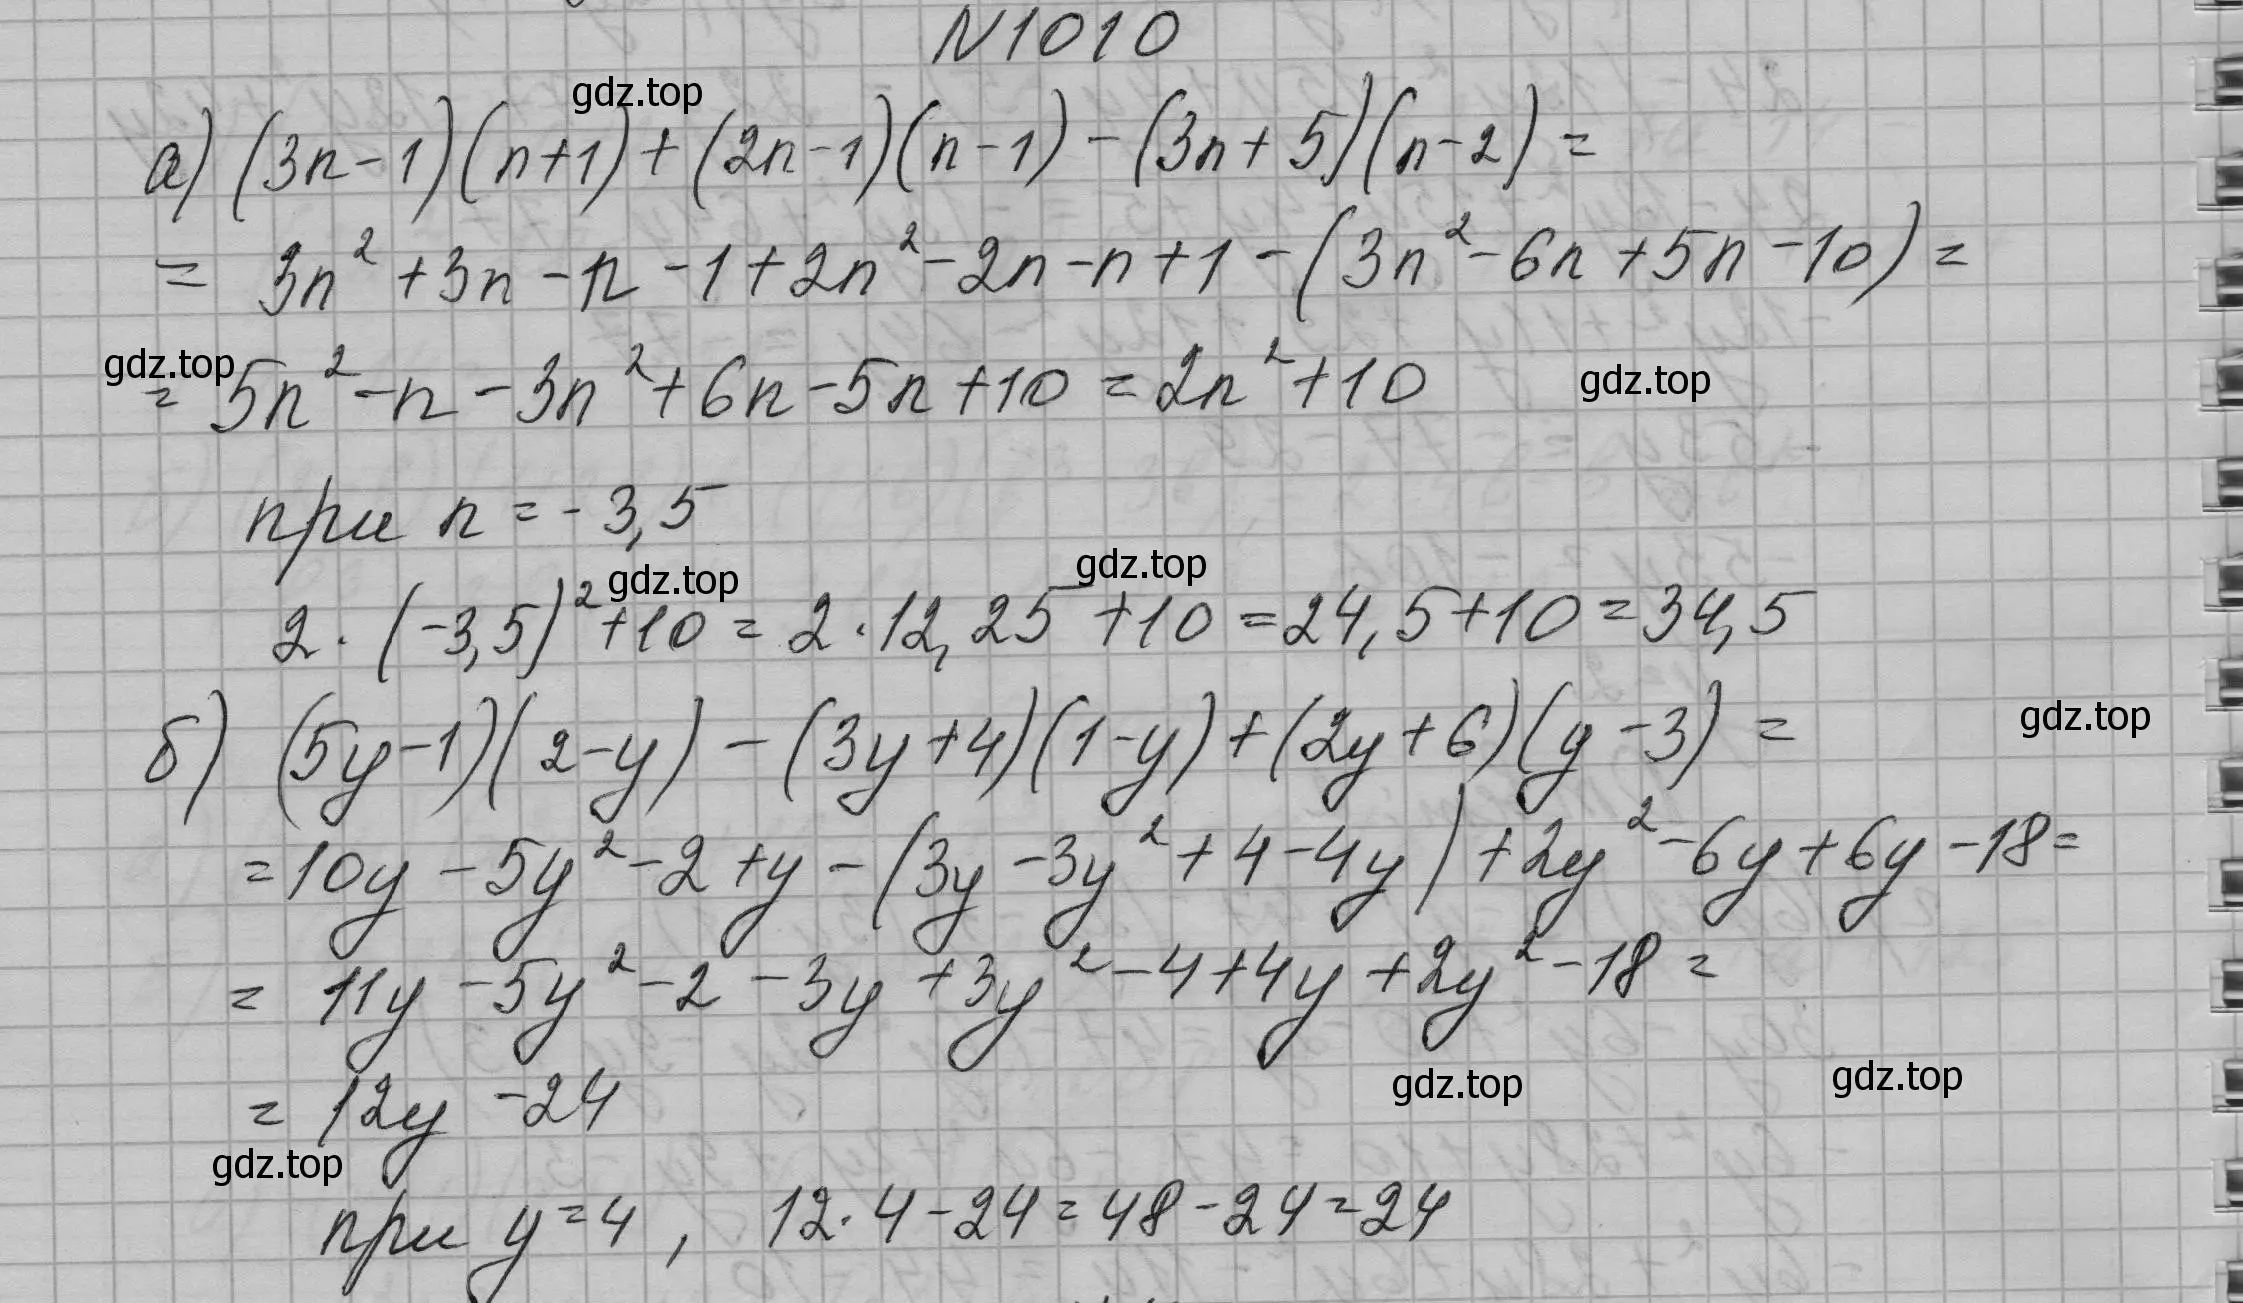 N1010
gdz.top
а) (3n-1)(n+1)+(2n-1)(n-1)-(3n+5)(n-2)=
= 3n²+3n-n-1+2n²-2n-n+1-(3n²-6n+5n-10)=
gdz.top
= 5n²-n-3n²+6n-5n+10=2n²+10
gdz.top
при n=-3,5
gdz.top
gdz.top
2·(-3,5)²+10=2·12,25+10=24,5+10=34,5
б) (5y-1)(2-y)-(3y+4)(1-y)+(2y+6)(y-3)=
gdz.top
=10y-5y²-2+y-(3y-3y²+4-4y)+2y²-6y+6y-18=
= 11y-5y²-2-3y+3y²-4+4y+2y²-18=
gdz.top
gdz.top
= 12y-24
gdz.top
при y=4, 12·4-24=48-24=24